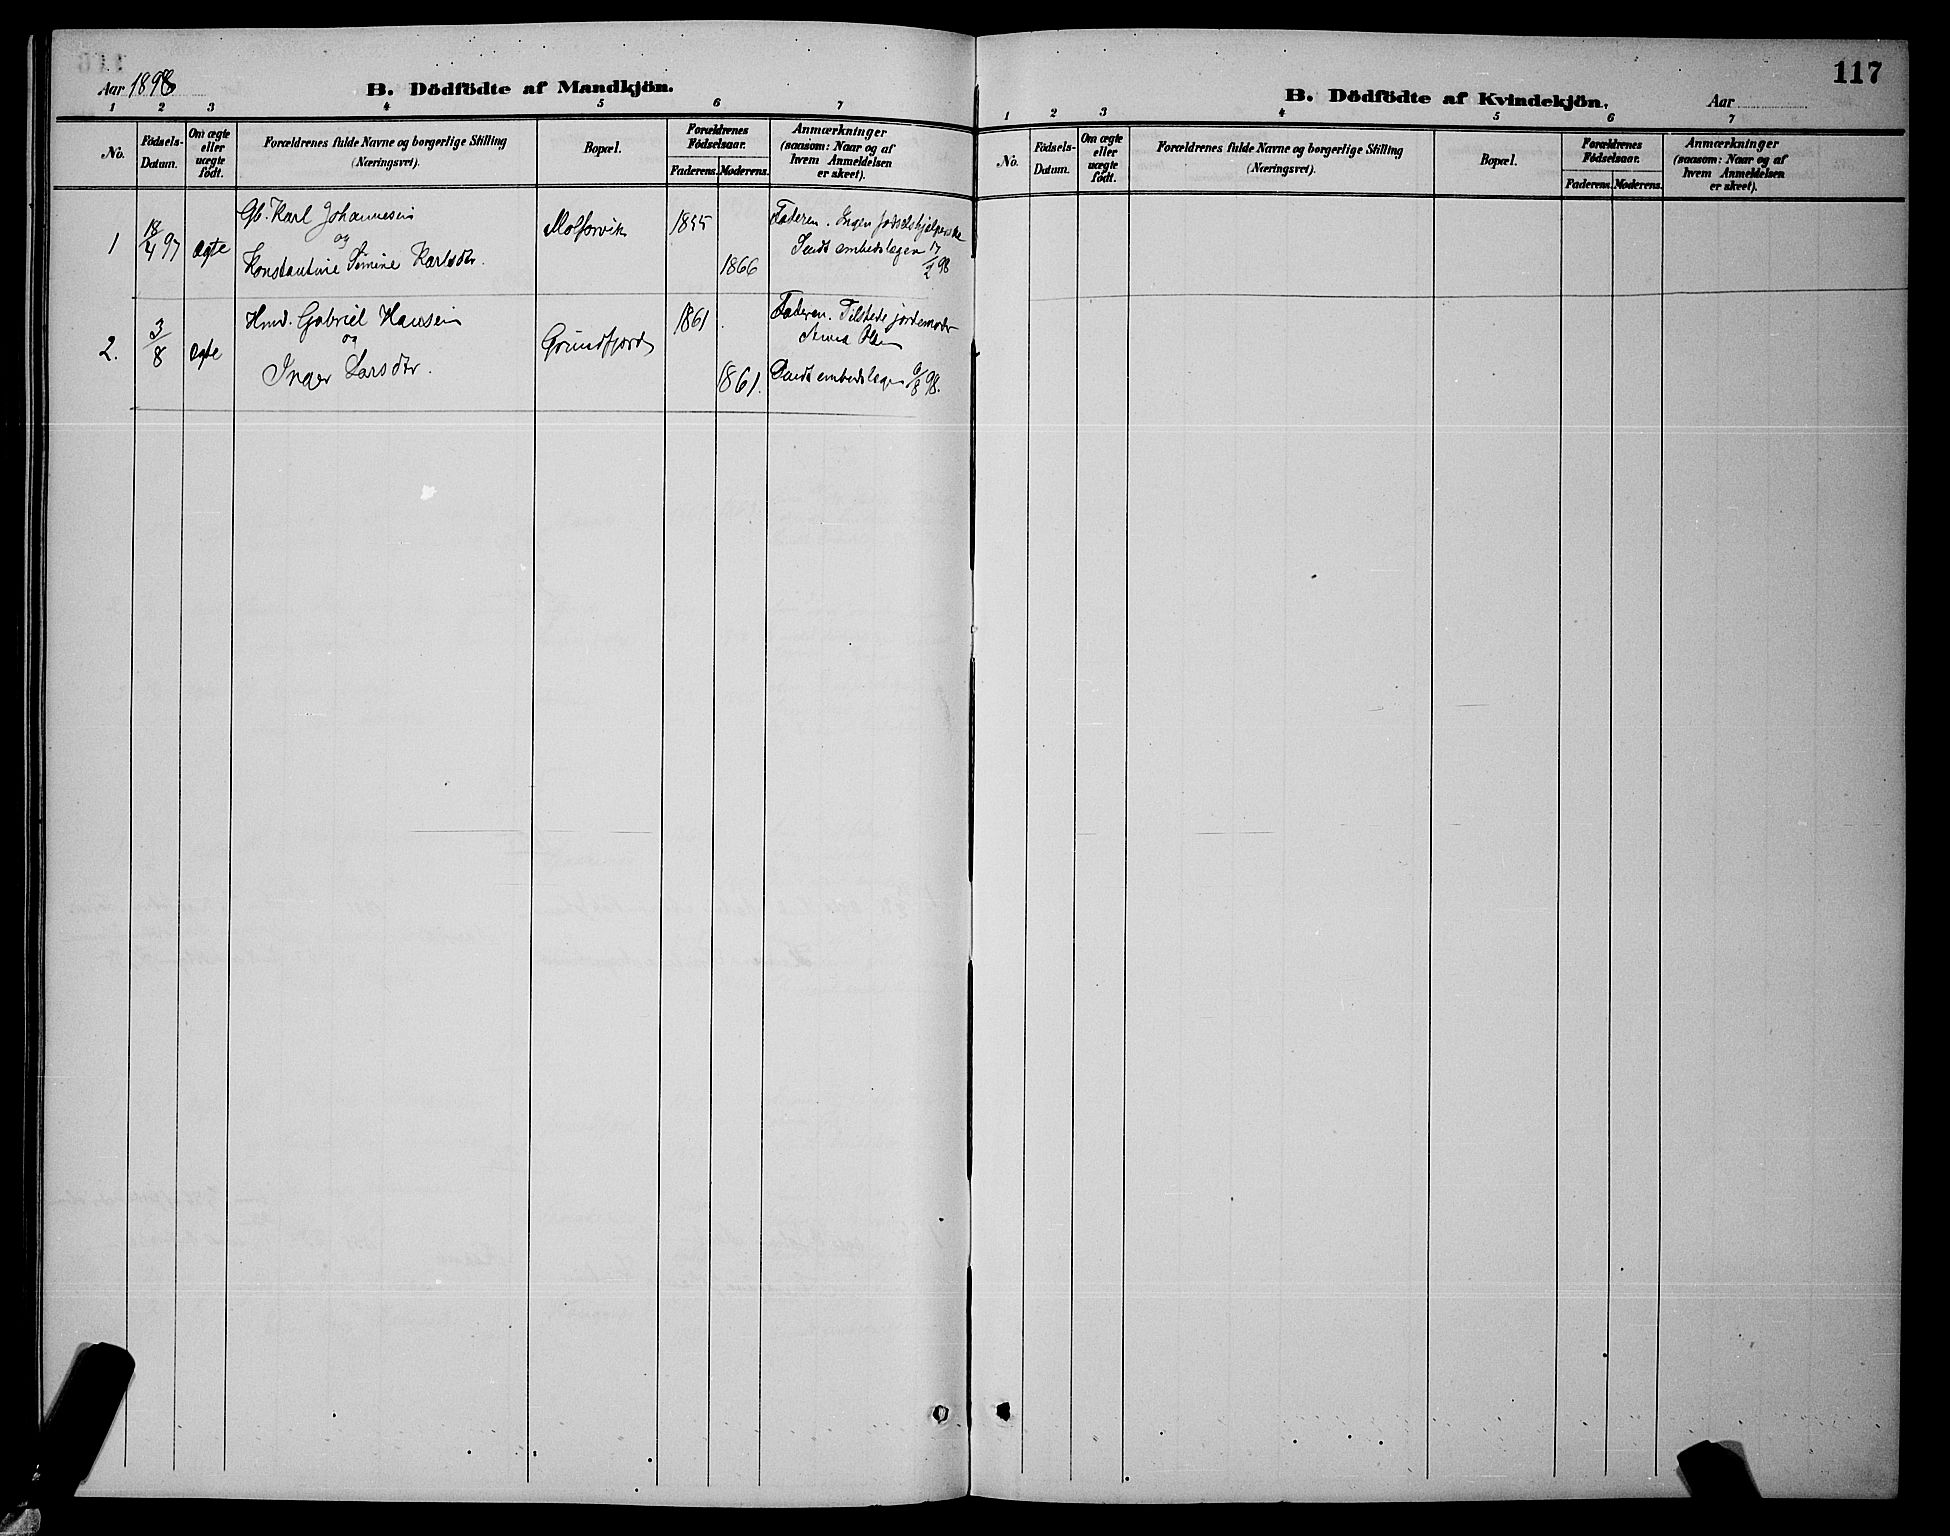 Aar 1898
B. Dödfödte af Mandkjön.
1 2 3 4 5 6 7
No.
Födsels-
Datum.
Om ægte
eller
uægte
födt.
Forældrenes fulde Navne og borgerlige Stilling
(Næringsvei).
Bopæl.
Forældrenes
Födselsaar.
Faderens. Moderens.
Anmærkninger
(saasom: Naar og af
hvem Anmeldelsen
er skeet).
1 18/4 97 ægte
Gb. Karl Johannesen
og
Konstantine Simine Karlsdtr.
1855
1866
Faderen. Ingen fødselshjelperske
Sendt embedslægen 17/2 98
2. 3/8 ægte
Hmd. Gabriel Hansen
og
Inger Larsdtr.
Grundfjord
1861
1861.
Faderen. Tilstede jordemoder
Anna Olsen
Sendt embedslægen 6/8 98.
117
B. Dödfödte af Kvindekjön.
Aar
1 2 3 4 5 6 7
No.
Födsels-
Datum.
Om ægte
eller
uægte
födt.
Forældrenes fulde Navne og borgerlige Stilling
(Næringsvei).
Bopæl.
Forældrenes
Födselsaar.
Faderens. Moderens.
Anmærkninger
(saasom: Naar og af
hvem Anmeldelsen
er skeet).